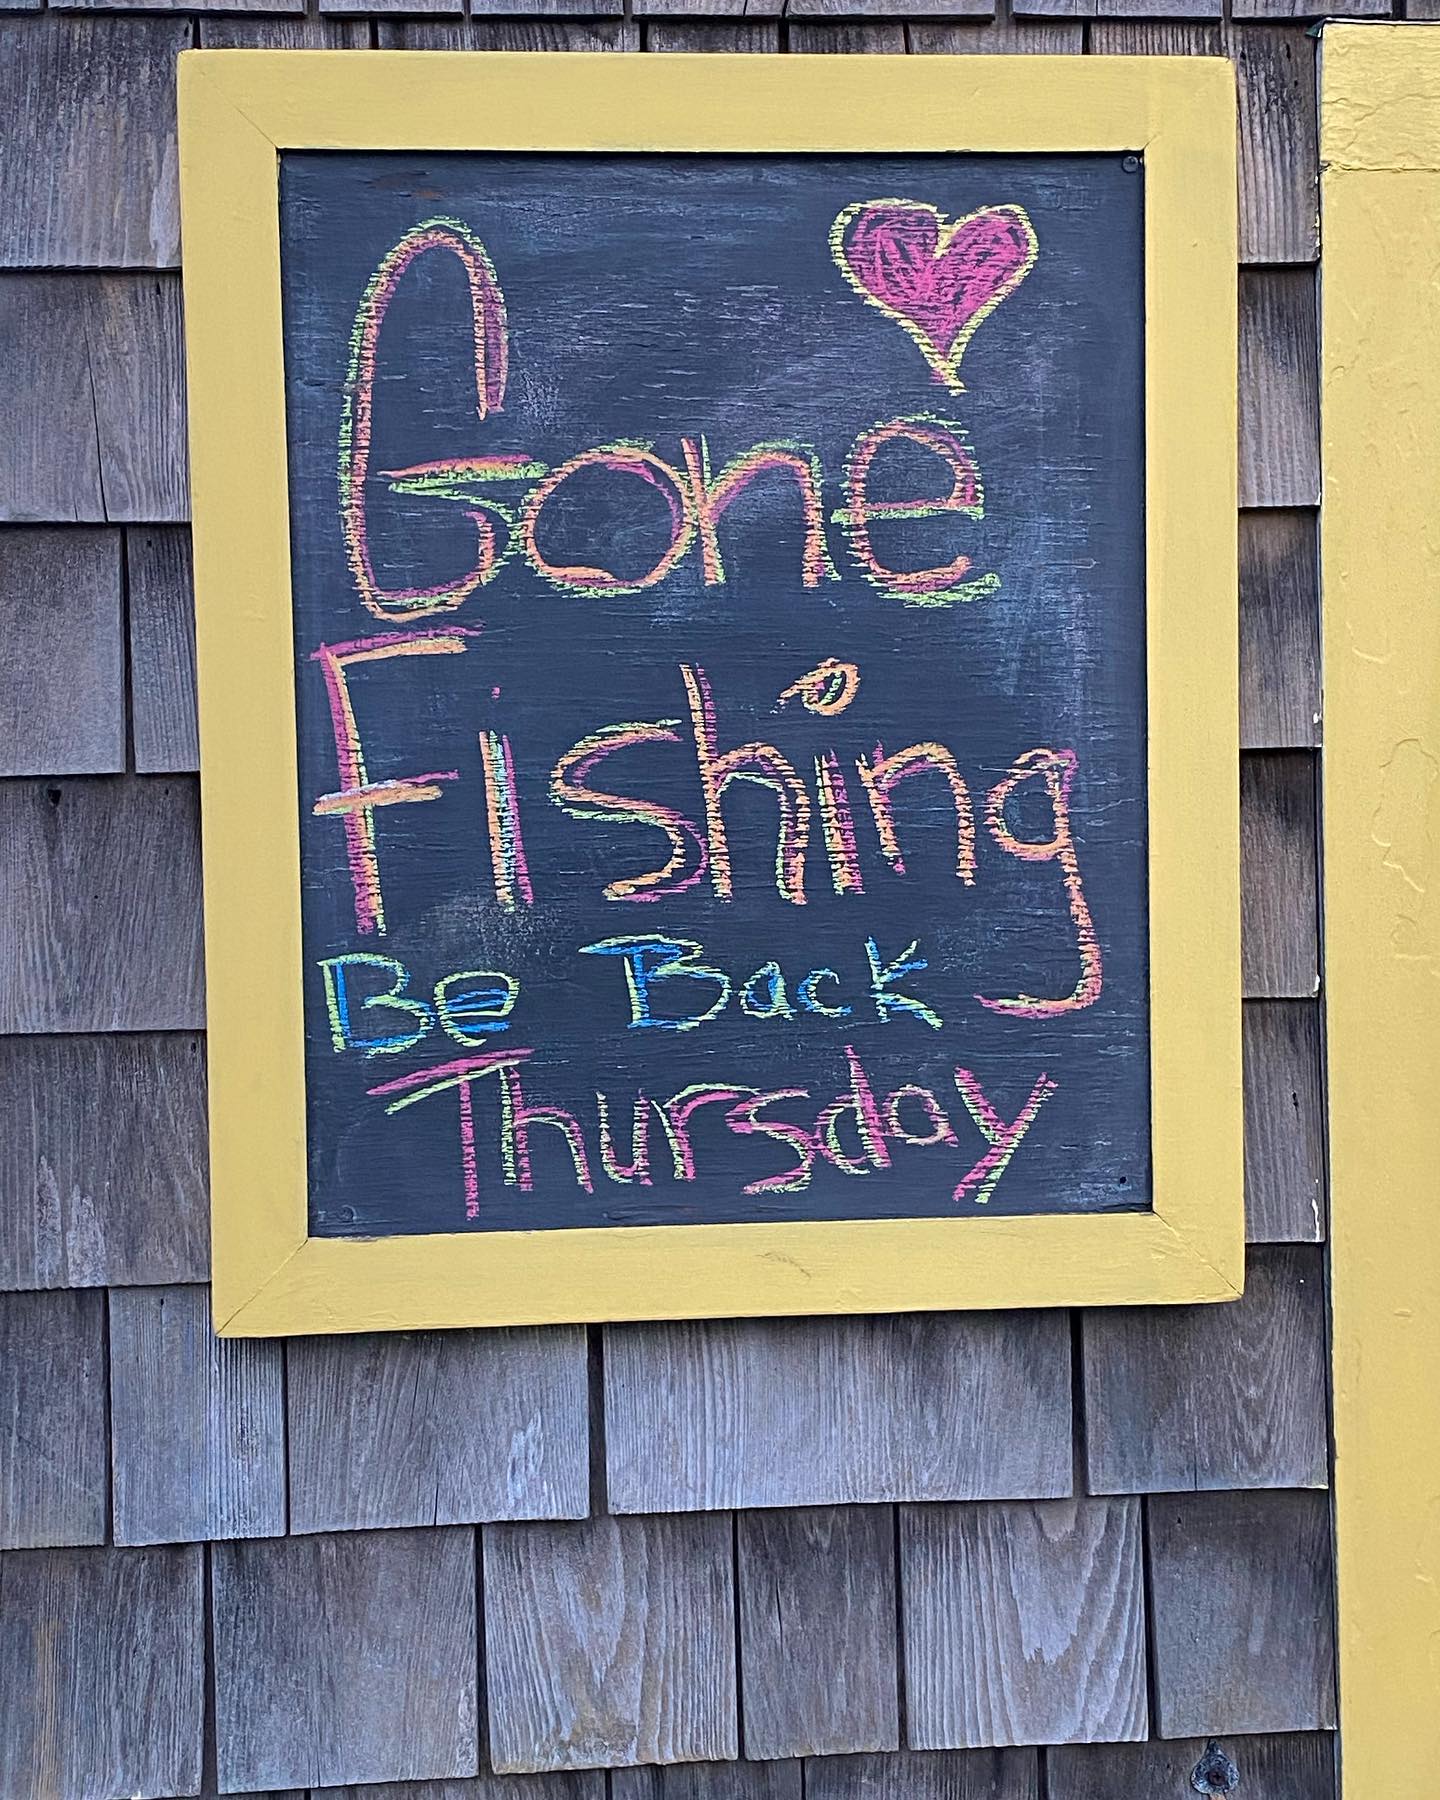 Gone
Fishing
Be Back
Thursday